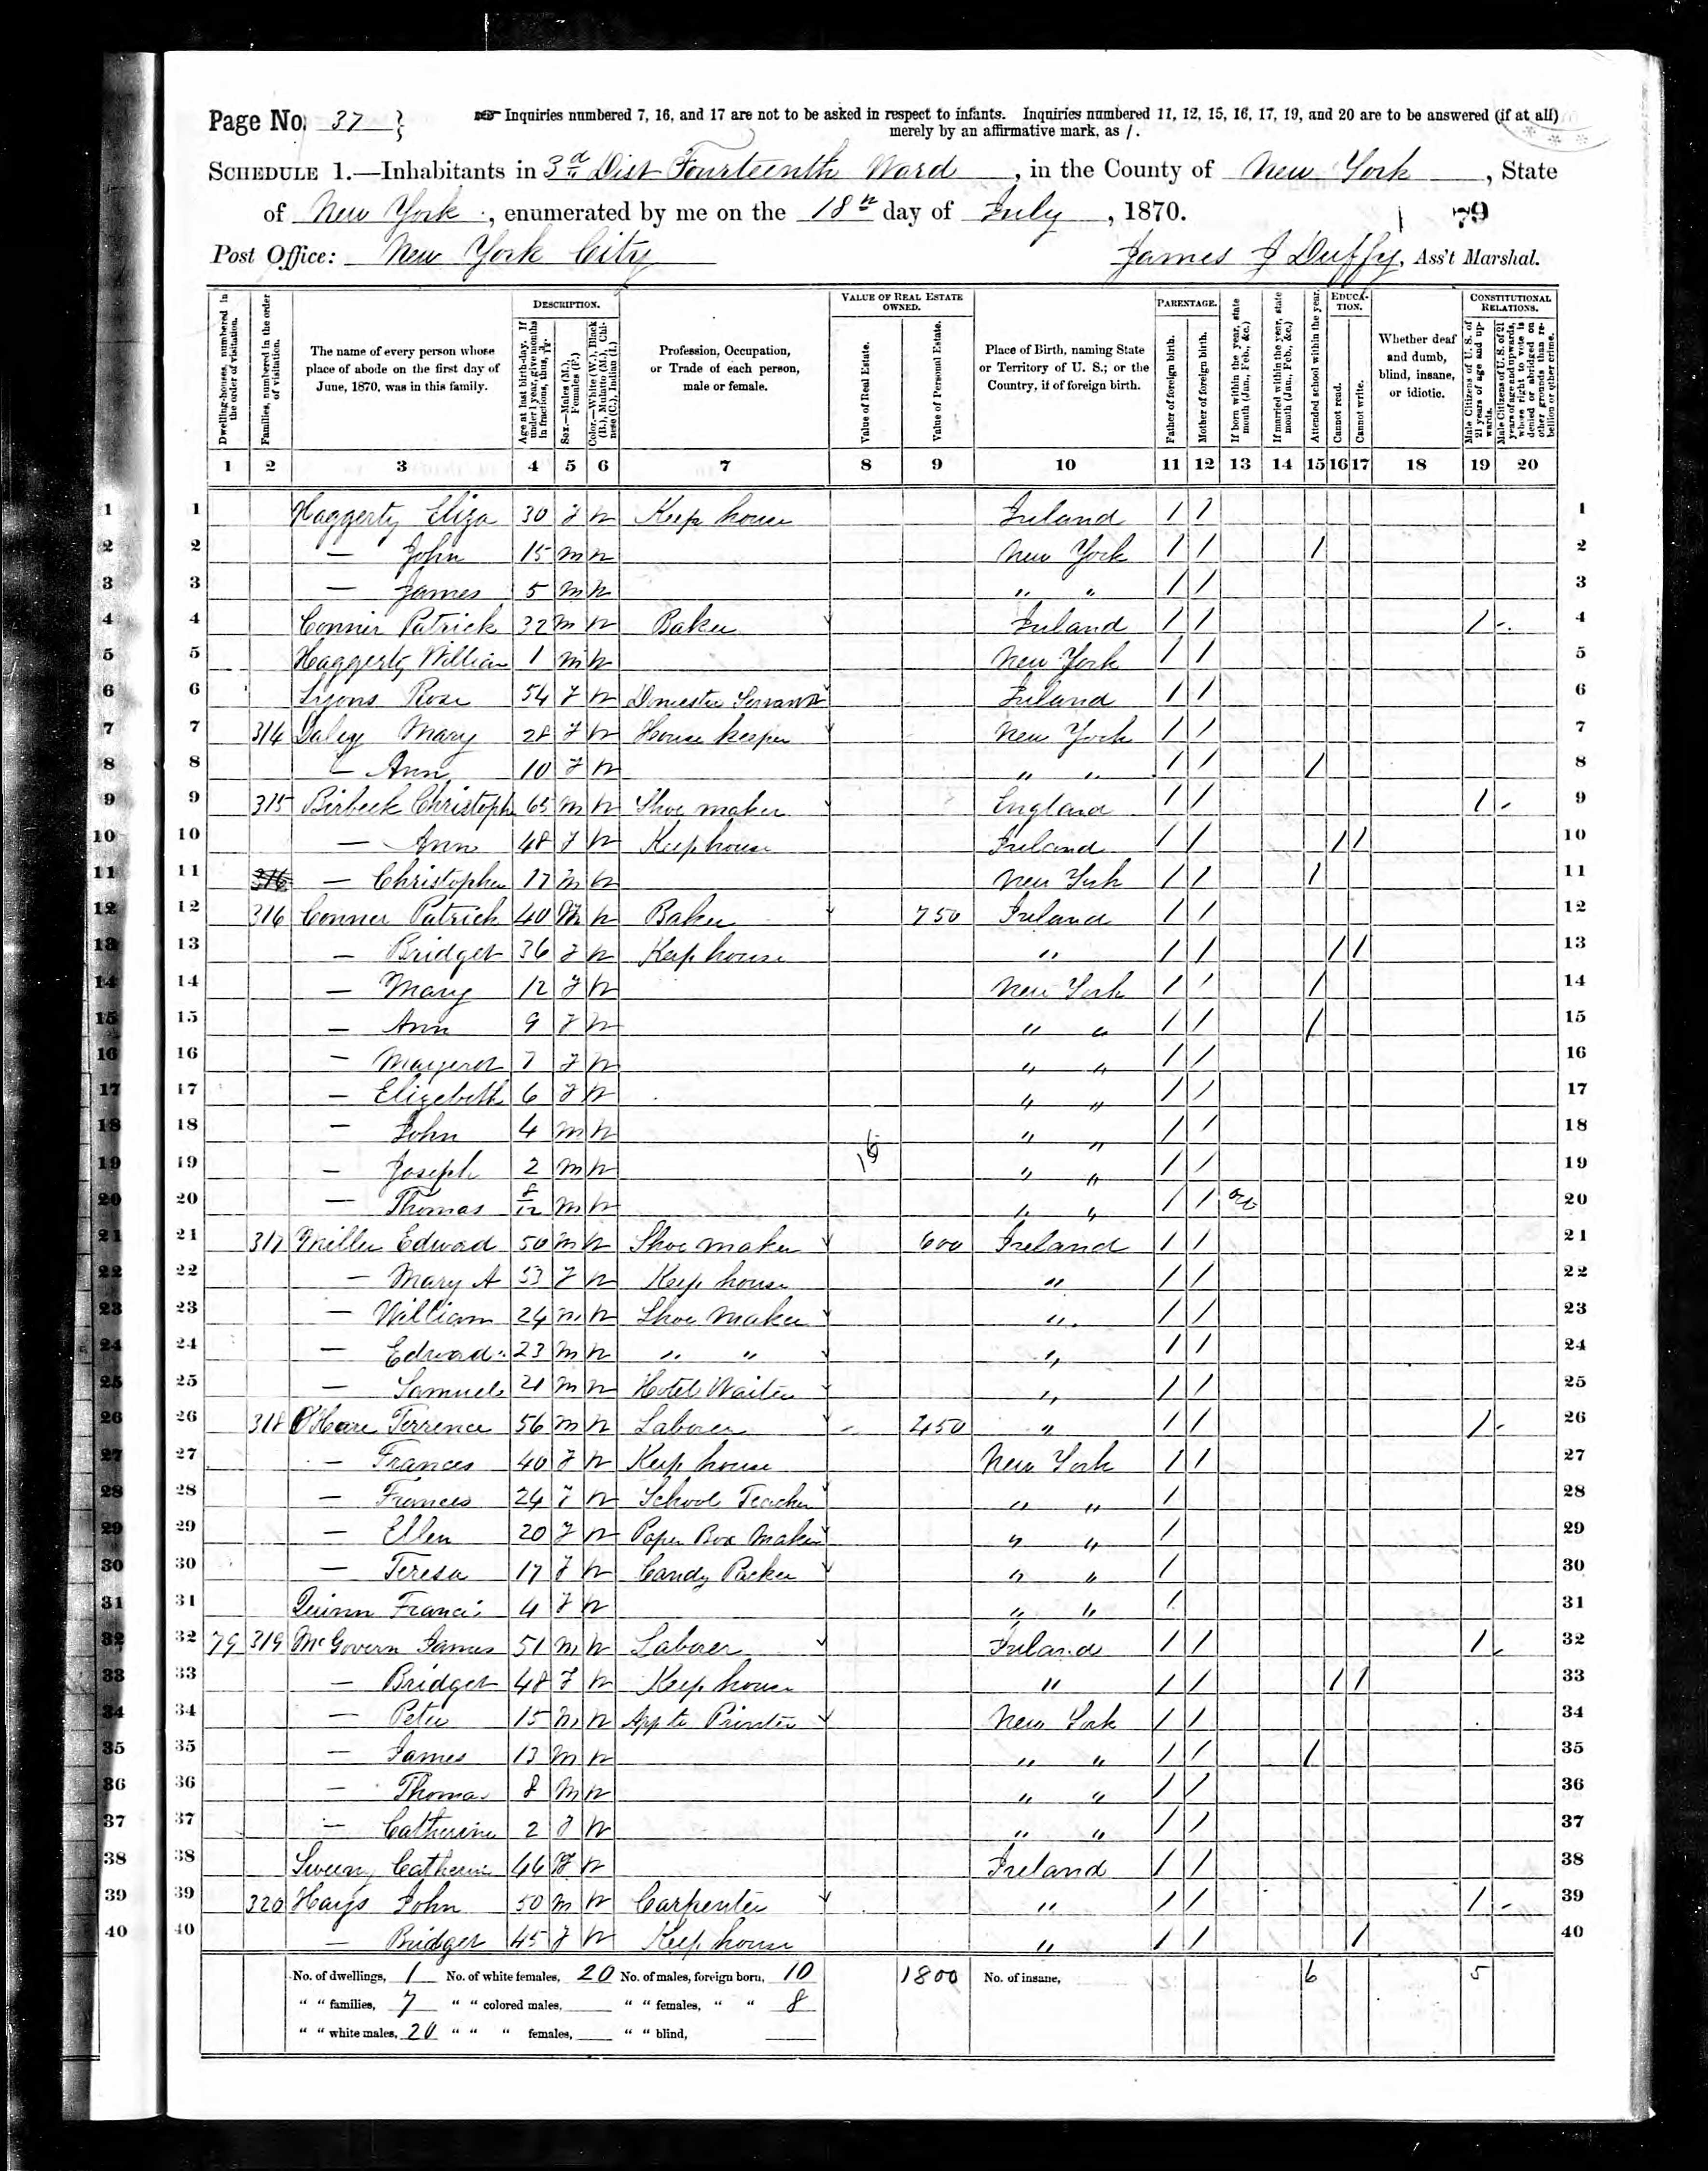 Page No. 37
Inquiries numbered 7, 16, and 17 are not to be asked in respect to infants. Inquiries numbered 11, 12, 15, 16, 17, 19, and 20 are to be answered (if at all)
merely by an affirmative mark, as /.
SCHEDULE 1.—Inhabitants in 3d Dist Fourteenth Ward, in the County of New York, State
of New York, enumerated by me on the 18th day of July, 1870.
79
Post Office: New York City James J Duffy, Ass't Marshal.
Dwelling-houses, numbered in the order of visitation.
Families, numbered in the order of visitation.
The name of every person whose place of abode on the first day of June, 1870, was in this family.
DESCRIPTION.
Age at last birth-day. If under 1 year, give months in fractions, thus,
Sex.—Males (M.), Females (F.)
Color.—White (W.), Black (B.), Mulatto (M.), Chinese (C.), Indian (I.)
Profession, Occupation, or Trade of each person, male or female.
VALUE OF REAL ESTATE OWNED.
Value of Real Estate.
Value of Personal Estate.
Place of Birth, naming State or Territory of U. S.; or the Country, if of foreign birth.
PARENTAGE.
Father of foreign birth.
Mother of foreign birth.
If born within the year, state month (Jan., Feb., &c.)
If married within the year, state month (Jan., Feb., &c.)
Attended school within the year.
EDUCATION.
Cannot read.
Cannot write.
Whether deaf and dumb, blind, insane, or idiotic.
CONSTITUTIONAL RELATIONS.
Male Citizens of U. S. of 21 years of age and upwards.
Male Citizens of U. S. of 21 years of age and upwards, whose right to vote is denied or abridged on other grounds than rebellion or other crime.
1 2 3 4 5 6 7 8 9 10 11 12 13 14 15 16 17 18 19 20
1 Haggerty Eliza 30 F W Keep house Ireland / / 1
2 — John 15 M W New York / / / 2
3 — James 5 M W " " / / 3
4 Conner Patrick 32 M W Baker Ireland / / / 4
5 Haggerty William 1 M W New York / / 5
6 Lyons Rose 54 F W Domestic Servant Ireland / / 6
7 314 Daley Mary 28 F W House keeper New York / / 7
8 — Ann 10 F W " " / / / 8
9 315 Birbeck Christoph 65 M W Shoe maker England / / / 9
10 — Ann 48 F W Keep house Ireland / / / / 10
11 316 — Christopher 17 M W New York / / / 11
12 316 Conner Patrick 40 M W Baker 750 Ireland / / 12
13 — Bridget 36 F W Keep house " / / / / 13
14 — Mary 12 F W New York / / / 14
15 — Ann 9 F W " " / / / 15
16 — Margeret 7 F W " " / / 16
17 — Elizebeth 6 F W " " / / 17
18 — John 4 M W " " / / 18
19 — Joseph 2 M W " " / / 19
20 — Thomas 8/12 M W " " / / 20
21 317 Miller Edward 50 M W Shoe maker 600 Ireland / / 21
22 — Mary A 53 F W Keep house " / / 22
23 — William 24 M W Shoe maker " / / 23
24 — Edward 23 M W " " " / / 24
25 — Samuel 21 M W Hotel Waiter " / / 25
26 318 O'Hare Terrence 56 M W Laborer 450 " / / / 26
27 — Frances 40 F W Keep house New York / / 27
28 — Frances 24 F W School Teacher " " / 28
29 — Ellen 20 F W Paper Box Maker " " / 29
30 — Teresa 17 F W Candy Packer " " / 30
31 Quinn Francis 4 F W " " / 31
32 79 319 McGovern James 51 M W Laborer Ireland / / / 32
33 — Bridget 48 F W Keep house " / / / / 33
34 — Peter 15 M W App to Printer New York / / 34
35 — James 13 M W " " / / / 35
36 — Thomas 8 M W " " / / 36
37 — Catherine 2 F W " " / / 37
38 Sweeny Catherine 46 F W Ireland / / 38
39 320 Hays John 50 M W Carpenter " / / / 39
40 — Bridget 45 F W Keep house " / / / 40
No. of dwellings, 1 No. of white females, 20 No. of males, foreign born, 10 1800 No. of insane, 6 5
" " families, 7 " " colored males, " " females, " " 8
" " white males, 20 " " " females, " " blind,